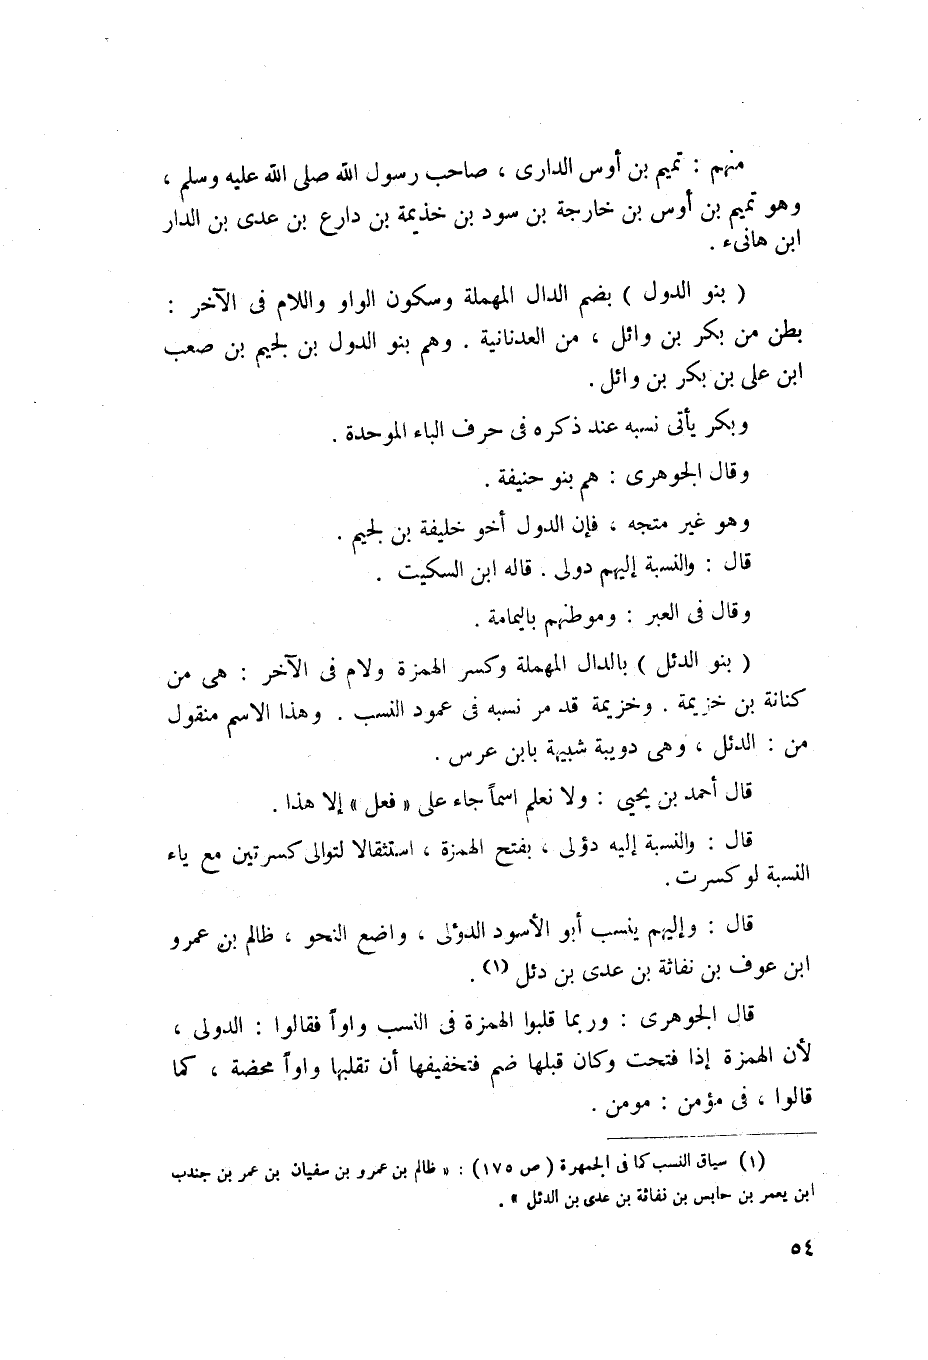 منهم : تميم بن أوس الدارى ، صاحب رسول الله صلى الله عليه وسلم ،
وهو تميم بن أوس بن خارجة بن سود بن خذيمة بن دارع بن عدى بن الدار
ابن هانىء .
( بنو الدول ) بضم الدال المهملة وسكون الواو واللام فى الآخر :
بطن من بكر بن وائل ، من العدنانية . وهم بنو الدول بن لجيم بن صعب
ابن على بن بكر بن وائل .
وبكر يأتى نسبه عند ذكره فى حرف الباء الموحدة .
وقال الجوهرى : هم بنو حنيفة .
وهو غير متجه ، فإن الدول أخو خليفة بن لجيم .
قال : والنسبة إليهم دولى . قاله ابن السكيت .
وقال فى العبر : وموطنهم باليمامة .
( بنو الدئل ) بالدال المهملة وكسر الهمزة ولام فى الآخر : هى من
كنانة بن خزيمة . وخزيمة قد مر نسبه فى عمود النسب . وهذا الاسم منقول
من : الدئل ، وهى دويبة شبيهة بابن عرس .
قال أحمد بن يحيى : ولا نعلم اسماً جاء على « فعل » إلا هذا .
قال : والنسبة إليه دؤلى ، بفتح الهمزة ، استثقالا لتوالى كسرتين مع ياء
النسبة لو كسرت .
قال : وإليهم ينسب أبو الأسود الدؤلى ، واضع النحو ، ظالم بن عمرو
ابن عوف بن نفاثة بن عدى بن دئل (١) .
قال الجوهرى : وربما قلبوا الهمزة فى النسب واواً فقالوا : الدولى ،
لأن الهمزة إذا فتحت وكان قبلها ضم فتخفيفها أن تقلبها واواً محضة ، كما
قالوا ، فى مؤمن : مومن .
(١) سياق النسب كما فى الجمهرة ( ص ١٧٥ ) : « ظالم بن عمرو بن سفيان بن عمر بن جندب
ابن يعمر بن حابس بن نفاثة بن عدى بن الدئل » .
٥٤